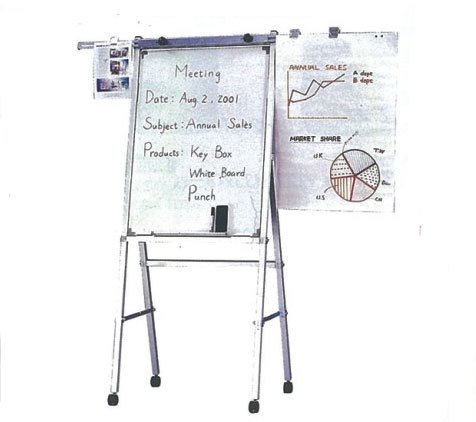 Meeting
Date: Aug. 2, 2001
Subject: Annual Sales
Products: Key Box
White Board
Punch
ANNUAL SALES
A dept
B dept
MARKET SHARE
U.K
T.W
U.S
CN